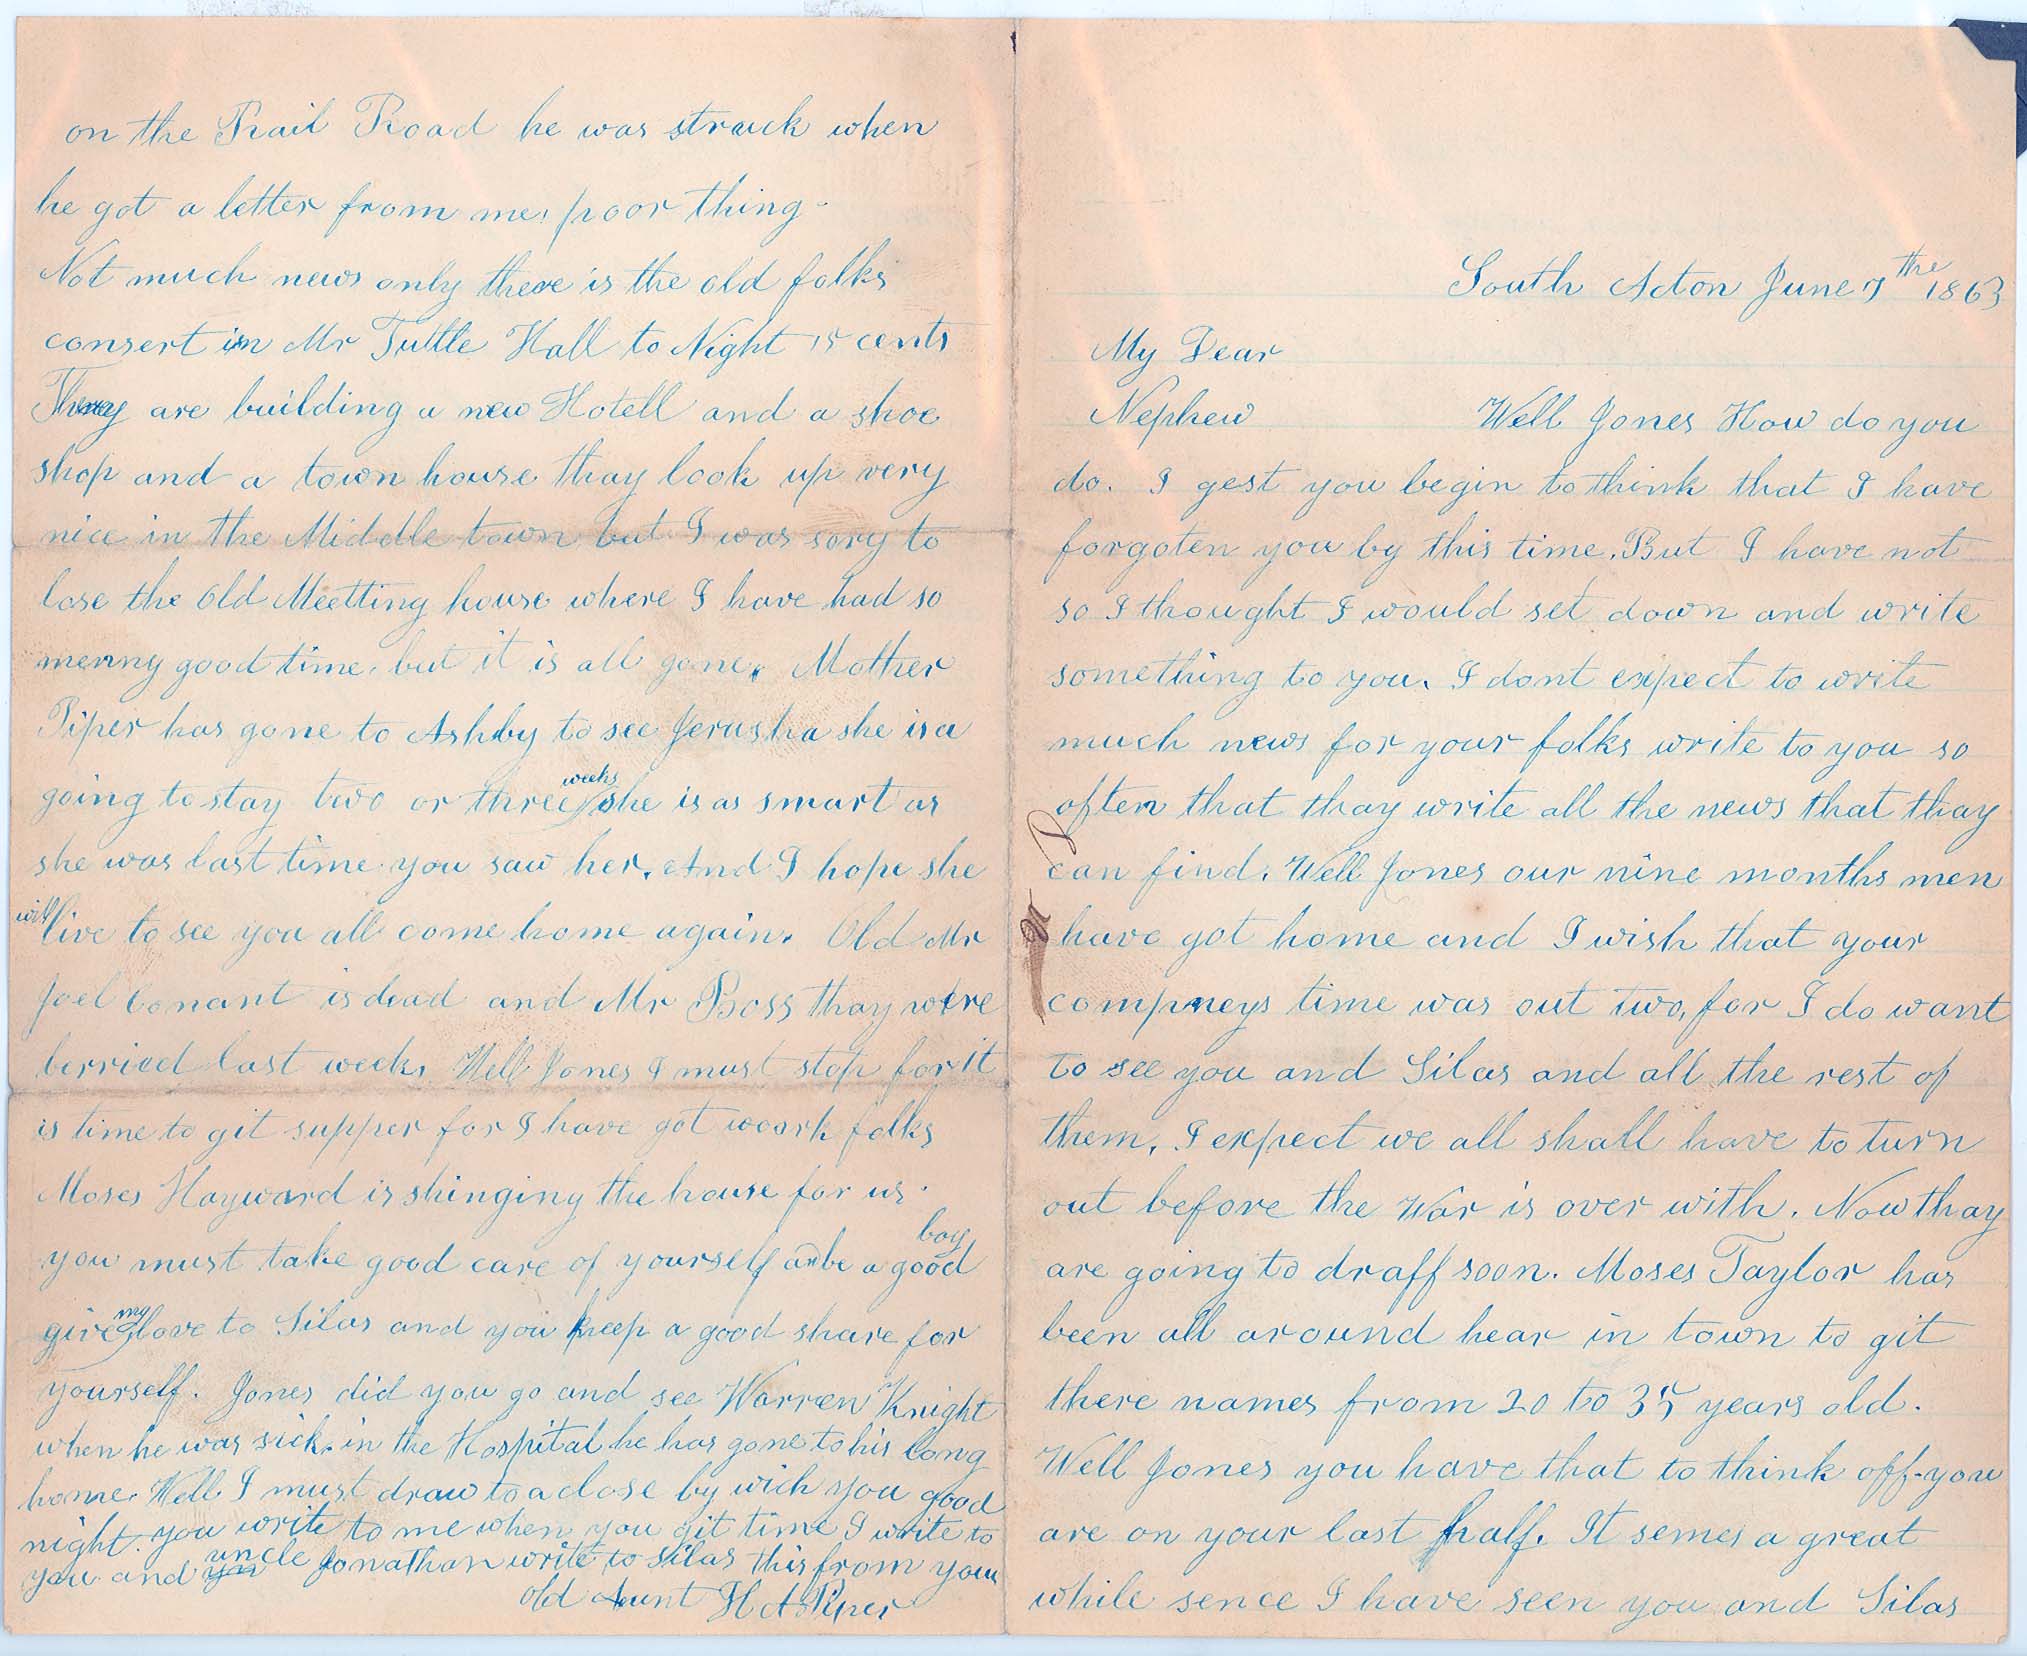 South Acton June 7the 1863
My Dear
Nephew Well Jones How do you
do. I gest you begin to think that I have
forgoten you by this time. But I have not
so I thought I would set down and write
something to you. I dont expect to write
much news for your folks write to you so
often that thay write all the news that thay
can find. Well Jones our nine months men
have got home and I wish that your
compneys time was out two, for I do want
to see you and Silas and all the rest of
them. I expect we all shall have to turn
out before the War is over with. Now thay
are going to draff soon. Moses Taylor has
been all around hear in town to git
there names from 20 to 35 years old.
Well Jones you have that to think off you
are on your last half. It semes a great
while sence I have seen you and Silas
on the Rail Road he was struck when
he got a letter from me, poor thing
Not much news only there is the old folks
consert in Mr Tuttle Hall to Night 15 cents
They are building a new Hotell and a shoe
shop and a town house thay look up very
nice in the Middle town but I was sory to
lose the Old Meetting house where I have had so
menny good time, but it is all gone. Mother
Piper has gone to Ashby to see Jerusha she is a
going to stay two or three weeks she is as smart as
she was last time you saw her. And I hope she
will live to see you all come home again. Old Mr
Joel Conant is dead and Mr Ross thay were
berried last week. Well Jones I must stop for it
is time to git supper for I have got woork folks
Moses Hayward is shinging the house for us.
you must take good care of yourself an be a good boy
give my love to Silas and you keep a good share for
yourself. Jones did you go and see Warren Knight
when he was sick in the Hospital he has gone to his long
home. Well I must draw to a close by wich you good
night. you write to me when you git time I write to
you and uncle Jonathan write to Silas this from your
old Aunt H A Piper